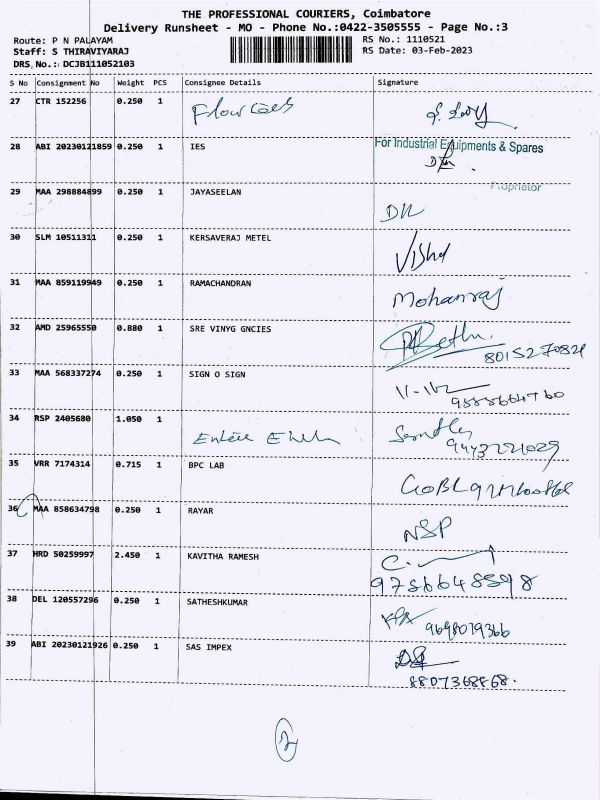 THE PROFESSIONAL COURIERS, Coimbatore
Delivery Runsheet - MO - Phone No.:0422-3505555 - Page No.:3
Route: P N PALAYAM
Staff: S THIRAVIYARAJ
DRS. No.: DCJB111052103
RS No.: 1110521
RS Date: 03-Feb-2023
S No Consignment No Weight PCS Consignee Details Signature
27 CTR 152256 0.250 1
28 ABI 20230121859 0.250 1 IES
For Industrial Equipments & Spares
Proprietor
29 MAA 298884899 0.250 1 JAYASEELAN
30 SLM 10511311 0.250 1 KERSAVERAJ METEL
31 MAA 859119949 0.250 1 RAMACHANDRAN
Mohanraj
32 AMD 25965550 0.880 1 SRE VINYG GNCIES
33 MAA 568337274 0.250 1 SIGN O SIGN
34 RSP 2405680 1.050 1
35 VRR 7174314 0.715 1 BPC LAB
36 MAA 858634798 0.250 1 RAYAR
NSP
37 HRD 50259997 2.450 1 KAVITHA RAMESH
38 DEL 120557296 0.250 1 SATHESHKUMAR
39 ABI 20230121926 0.250 1 SAS IMPEX
8807368868.
2